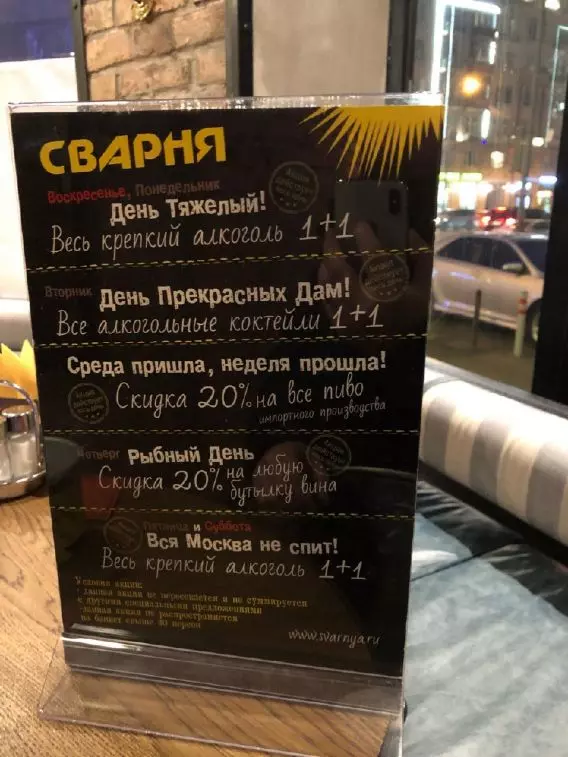 СВАРНЯ
Воскресенье, Понедельник
День Тяжелый!
Весь крепкий алкоголь 1+1
Акция действует весь день
Вторник
День Прекрасных Дам!
Все алкогольные коктейли 1+1
Акция действует весь день
Среда пришла, неделя прошла!
Скидка 20% на все пиво
импортного производства
Акция действует весь день
Четверг
Рыбный День
Скидка 20% на любую
бутылку вина
Пятница и Суббота
Вся Москва не спит!
Весь крепкий алкоголь 1+1
Условия акции:
- данная акция не пересекается и не суммируется
с другими специальными предложениями
- данная акция не распространяется
на банкет свыше 10 персон
www.svarnya.ru